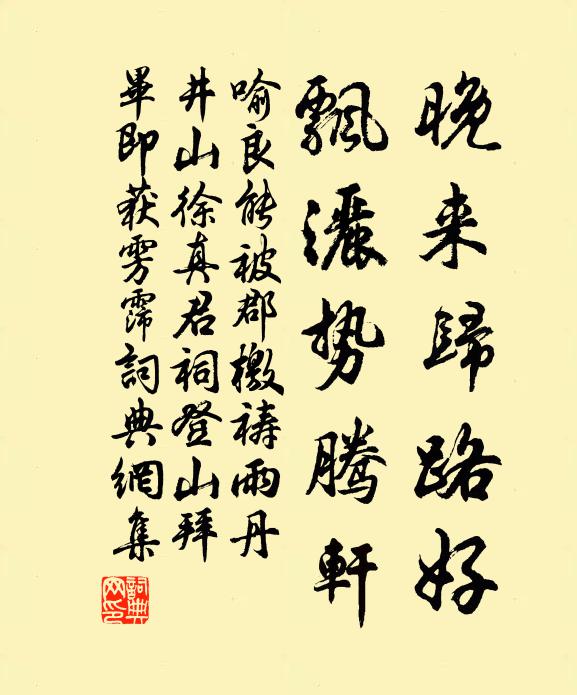 晚来歸路好
飄灑势腾軒
喻良能被郡檄禱雨丹
井山徐真君祠登山拜
畢即获雱霈詞典網集
詞典
网印